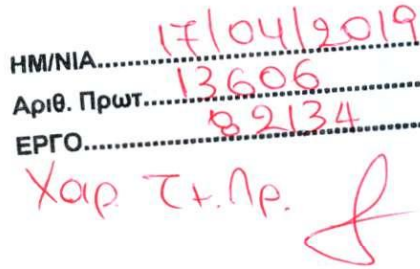 ΗΜ/ΝΙΑ.......... 17/04/2019
Αριθ. Πρωτ.......... 13606
ΕΡΓΟ.......... 82134
Χαρ. Τ+.Πρ.